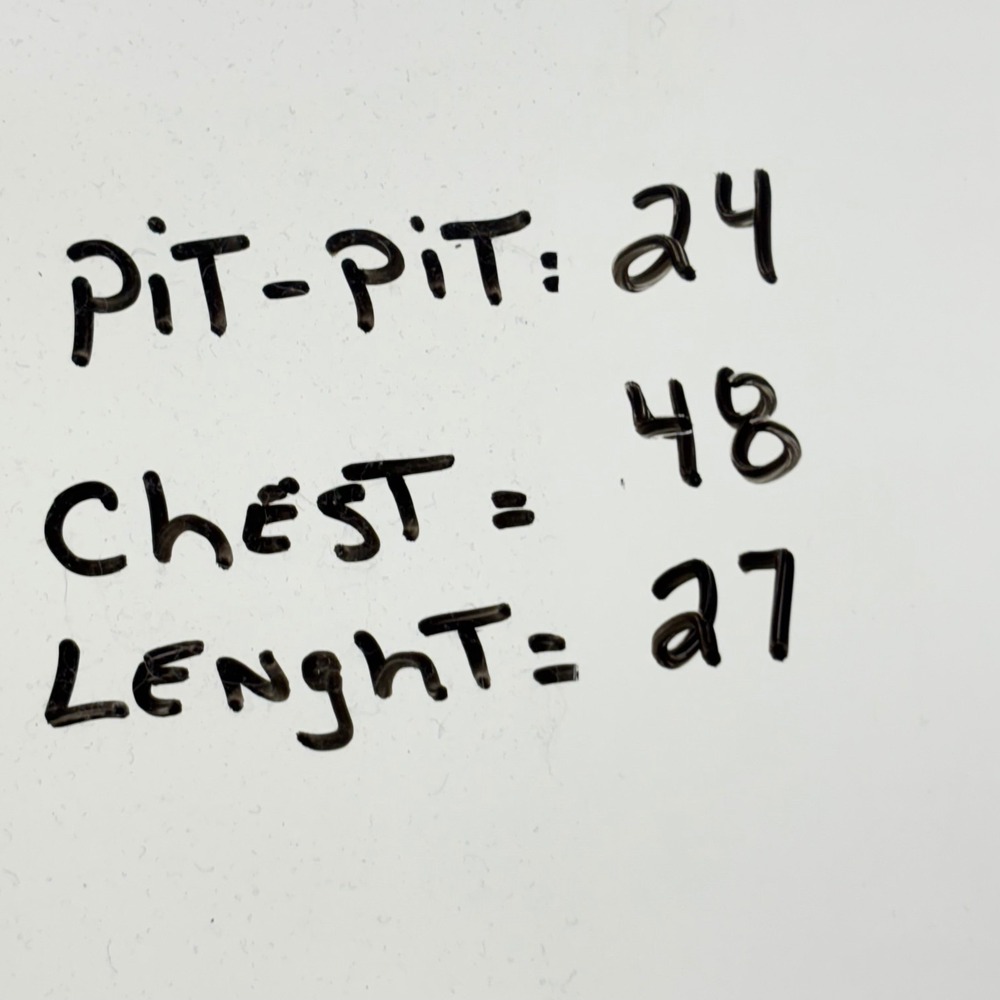 PiT-PiT: 24
ChEST = 48
LENghT= 27